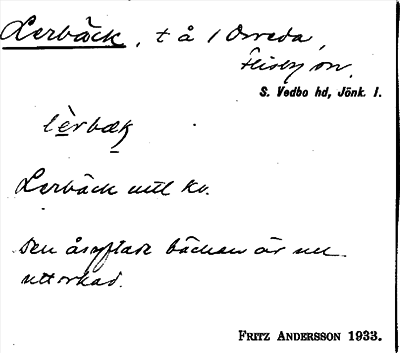 Lerbäck, t å / Orreda,
Flisby sn.
S. Vedbo hd, Jönk. l.
lèrbæk
Lerbäck enl kv.
Den åsyftade bäcken är nu
uttorkad.
FRITZ ANDERSSON 1933.